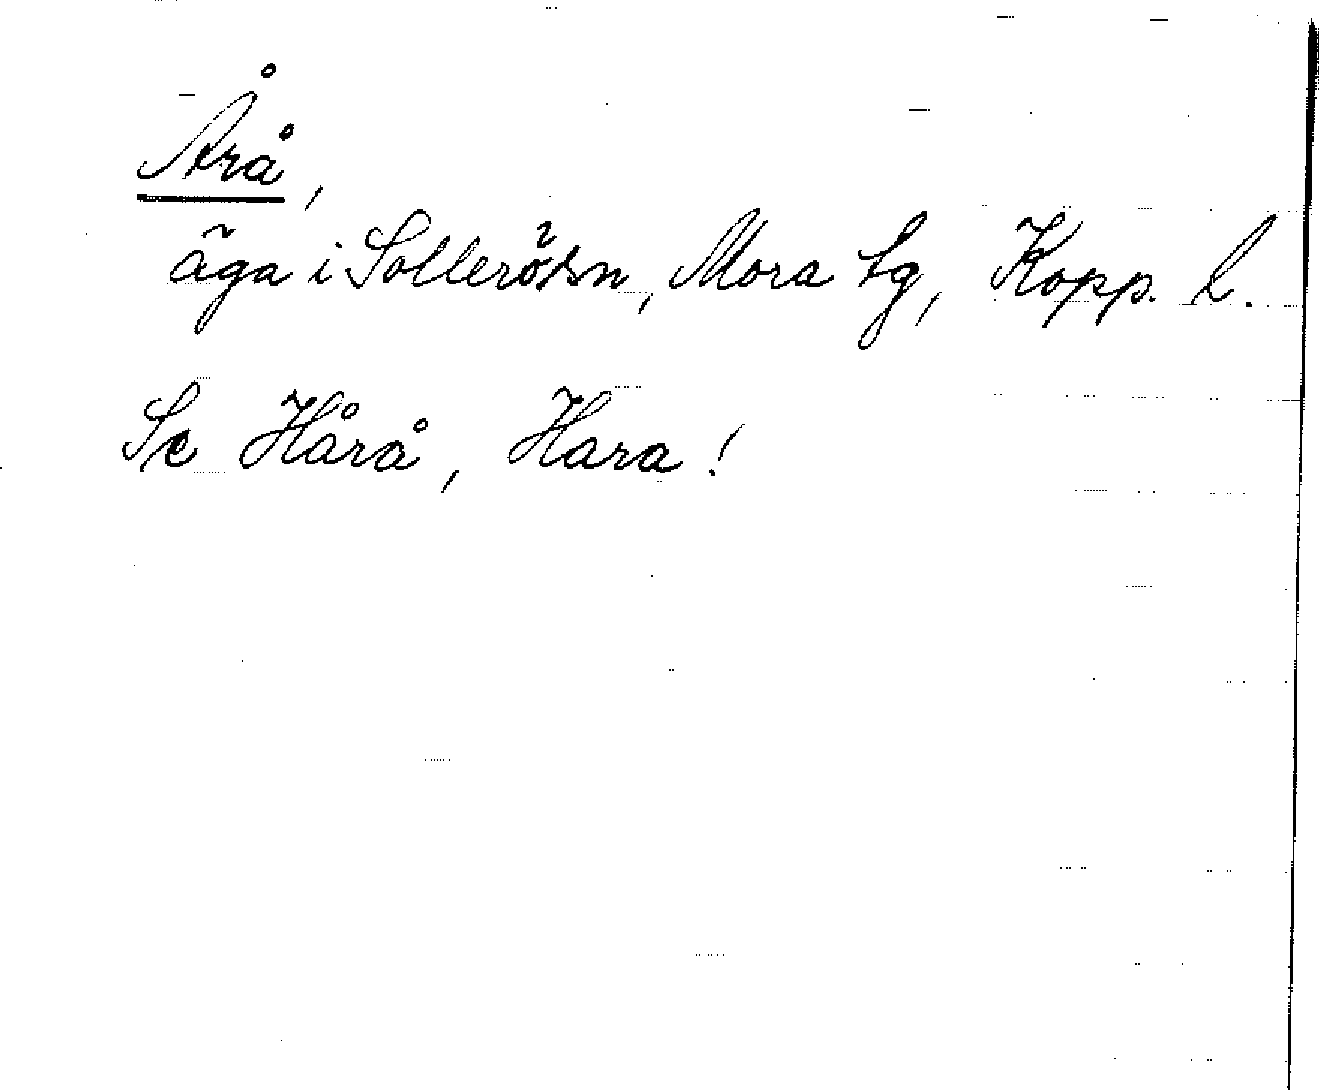 Årå,
äga i Sollerö sn, Mora tg, Kopp. l.
Se Hårå, Hara!